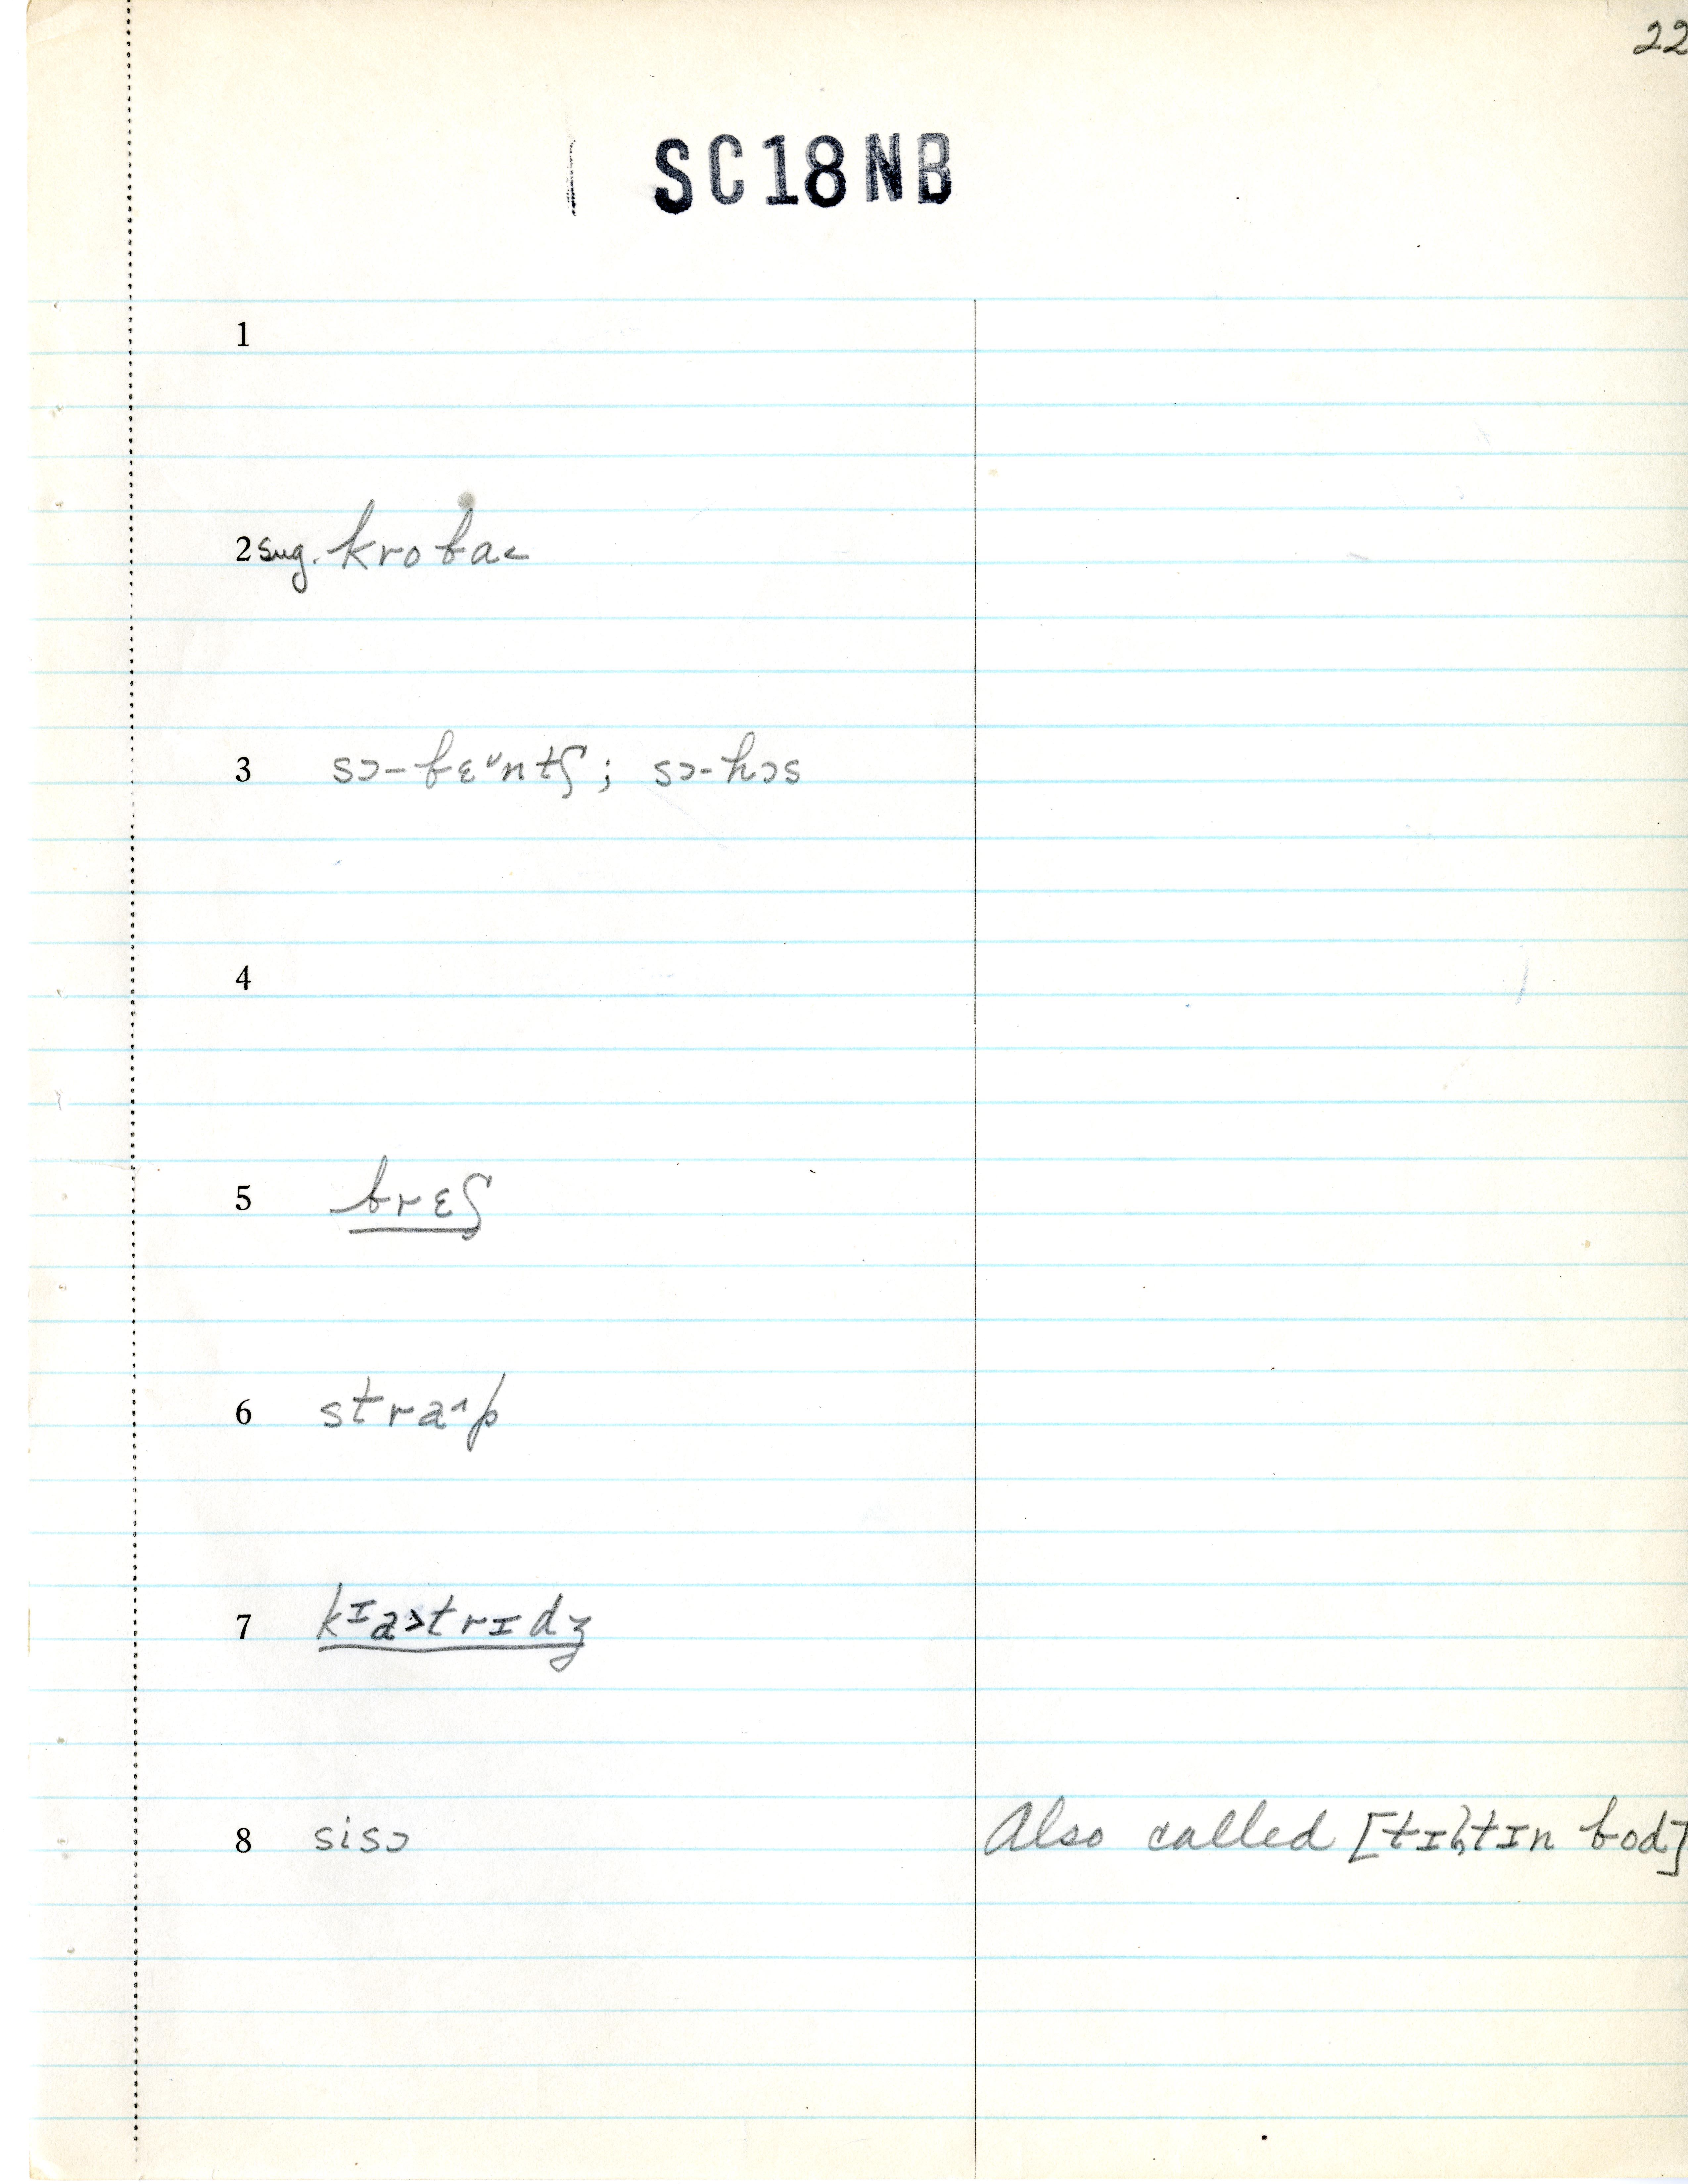 22
SC18NB
1
2 sug. kroba˂
3 sɔ-bɛᵛntʃ; sɔ-hɔs
4
5 brɛʃ
6 stra˄p
7 kᶦa˃trɪdʒ
8 sisɔ Also called [tɪltɪn bod]